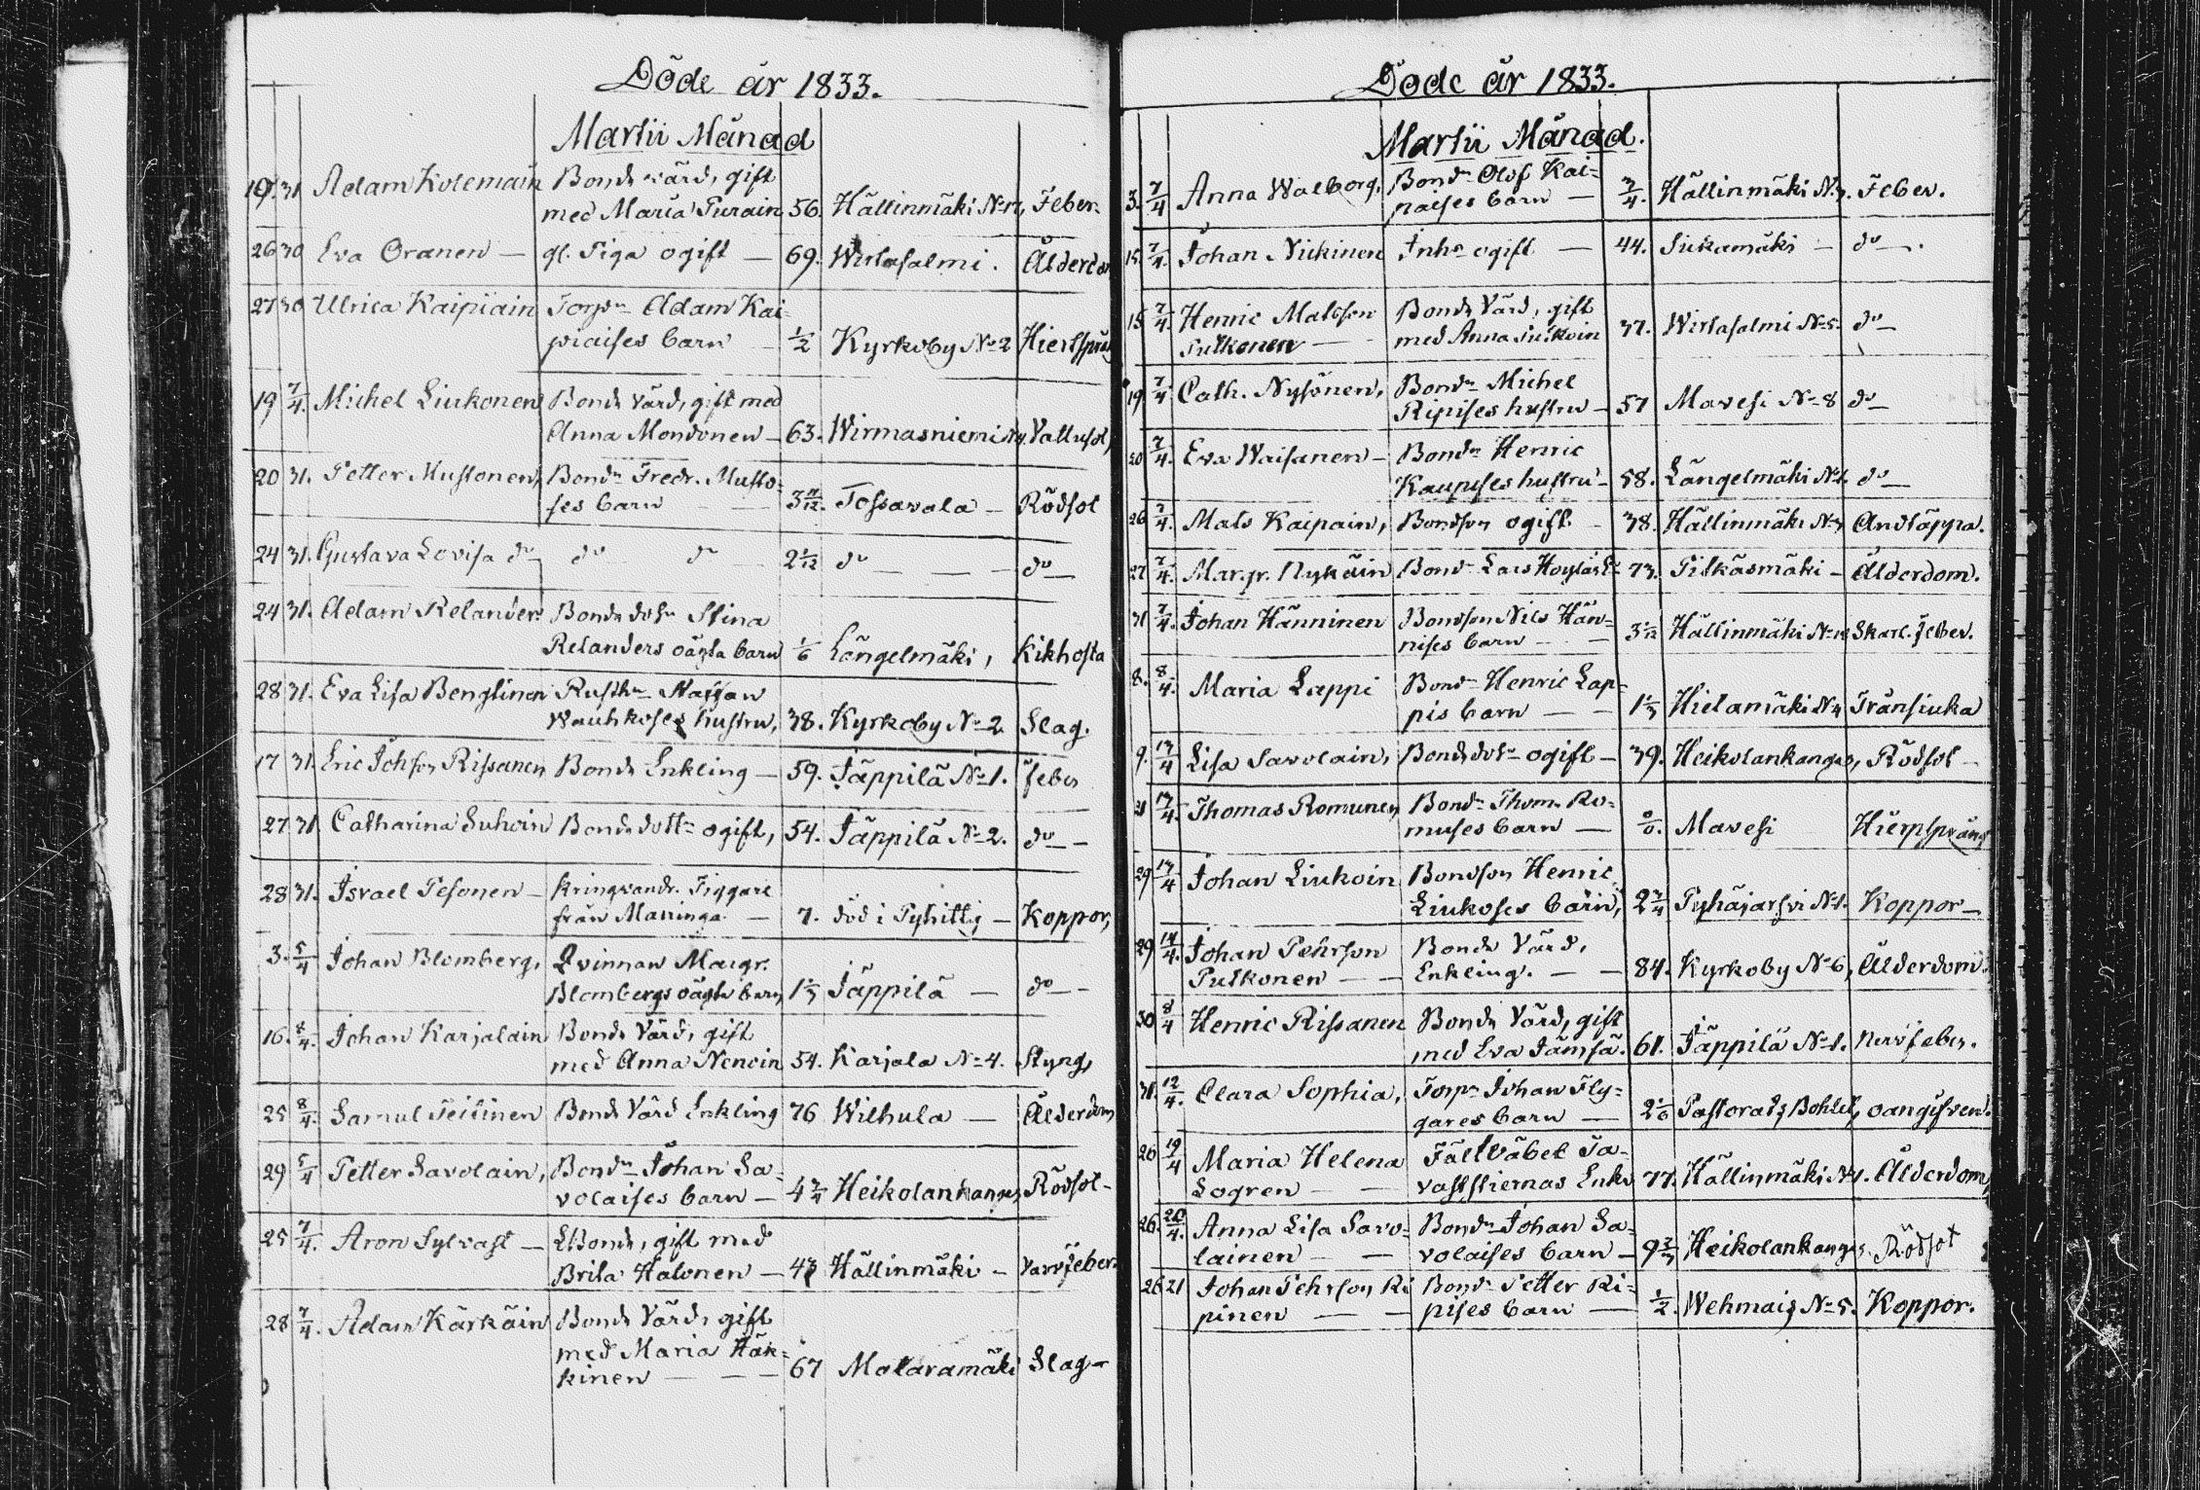 Döde år 1833.
Martii Månad
19. 31 Adam Kolemain Bonde värd, gift
med Maria Purain 56. Hällinmäki Feber.
26 30 Eva Oranen — gl. Piga ogift — 69. Wirtasalmi. Ålderdom
27 30 Ulrica Kaipiain Torpn Adam Kai-
piaises barn — 1/2 Kyrkoby No 2 Hiertsprång
19 7/4. Michel Liukonen Bonde Värd, gift med
Anna Mondonen — 63. Wirmasniemi Vattusot,
20 31. Petter Mustonen, Bondn Fredr. Musto-
ses barn — 3 Tossavala — Rödsot
24 31. Gustava Lovisa do do do 2 1/12 do — do —
24 31. Adam Relander Bonde dotr Stina
Relanders oägta barn 1/6 Längelmäki, Kikhosta
28 31. Eva Lisa Bengtinen Rusth. Staffan
Wauhkoses hustru, 38. Kyrkoby No 2 Slag.
17 31. Eric Johsson Rissanen Bonde Enkling — 59. Jäppilä No 1. Feber
27 31 Catharina Suhoin Bonde dottr ogift, 54. Jäppilä No 2. do —
28 31. Israel Pesonen — kringvandr. Tiggare
från Maninga — 7. död i Pyhittyj — Koppor,
3. 5/4 Johan Blomberg, Qvinnan Margr.
Blombergs oägta barn 1 1/3 Jäppilä — do —
16. 8/4. Johan Karjalain Bonde Värd, gift
med Anna Nenoin 54. Karjala No 4. Styng,
25 8/4. Samul Teitinen Bonde Värd Enkling 76 Wilhula — Ålderdom
29 5/4 Petter Savolain, Bondn Johan Sa-
volaises barn — 4 3/4 Heikolankangas Rödsot —
25 7/4. Aron Sylvast — Bonde, gift med
Brita Halonen — Hällinmäki — Feber.
28 7/4. Adam Kärkäin Bonde Värd, gift
med Maria Häk-
kinen — 67 Mataramäki Slag —
Döde år 1833.
Martii Månad.
3. 7/4 Anna Walborg, Bondn Olof Kai-
paises barn — 3/4. Hällinmäki Feber.
15. 7/4. Johan Nikinen Inhs ogift — 44. Sukamäki — do —.
15 7/4. Henric Matsson Bonde Värd, gift
Pulkonen — med Anna Liukoin 37. Wirtasalmi No 5. do —
19 7/4 Cath. Nysönen, Bondn Michel
Ripises hustru — 57 Mavesi No 8 do —
20 7/4. Eva Waisanen — Bondn Henric
Kaupises hustru — 58. Längelmäki do —
26 7/4. Mats Kaipain, Bondson ogift — 38. Hällinmäki Andtäppa.
27 7/4. Margr. Nykäin Bondn Lars 73. Pitkäsmäki — Ålderdom.
31 7/4. Johan Hänninen Bondson Nils Hän-
nises barn — 3 1/12 Hällinmäki Skarl. Feber.
8. 8/4. Maria Lappi Bondn Henric Lap-
pis barn — 1 1/3 Hietamäki No 4 Trånsiuka
9. 13/4 Lisa Savolain, Bonde dotr ogift — 39. Heikolankangas, Rödsot —
31 13/4. Thomas Romunen, Bondn Thom. Ro-
muses barn — 0/0. Mavesi Hiertsprång
29 13/4 Johan Liukoin Bondson Henric
Liukoses barn, 2 3/4 Pyhäjärfvi No 1. Koppor —
29 14/4. Johan Pehrson Bonde Värd,
Pulkonen — Enkling. — 84. Kyrkoby No 6, Ålderdom.
30 8/4 Henric Rissanen Bonde Värd, gift
med Eva Jämsä. 61. Jäppilä No 1. Nervfeber.
31. 12/4. Clara Sophia, Torpn Johan Fly-
gares barn — 2 1/6 Pastorats Bohlet, oangifven.
26 19/4 Maria Helena Fältväbel Ta-
Logren — vaststiernas Enka 77. Hällinmäki Ålderdom,
26. 20/4. Anna Lisa Savo- Bondn Johan Sa-
lainen — volaises barn — 9 2/3 Heikolankangas Rödsot
26 21 Johan Pehrson Ri Bondn Petter Ri-
pinen — pises barn — 1/2. Wehmais No 5. Koppor.